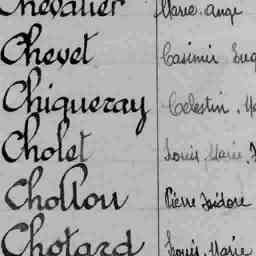 Chevalier Marie-Ange
Chevet Casimir Eug
Chiqueray Célestin, Ma
Cholet Louis, Marie, J
Chollou Pierre Isidore
Chotard Louis, Marie